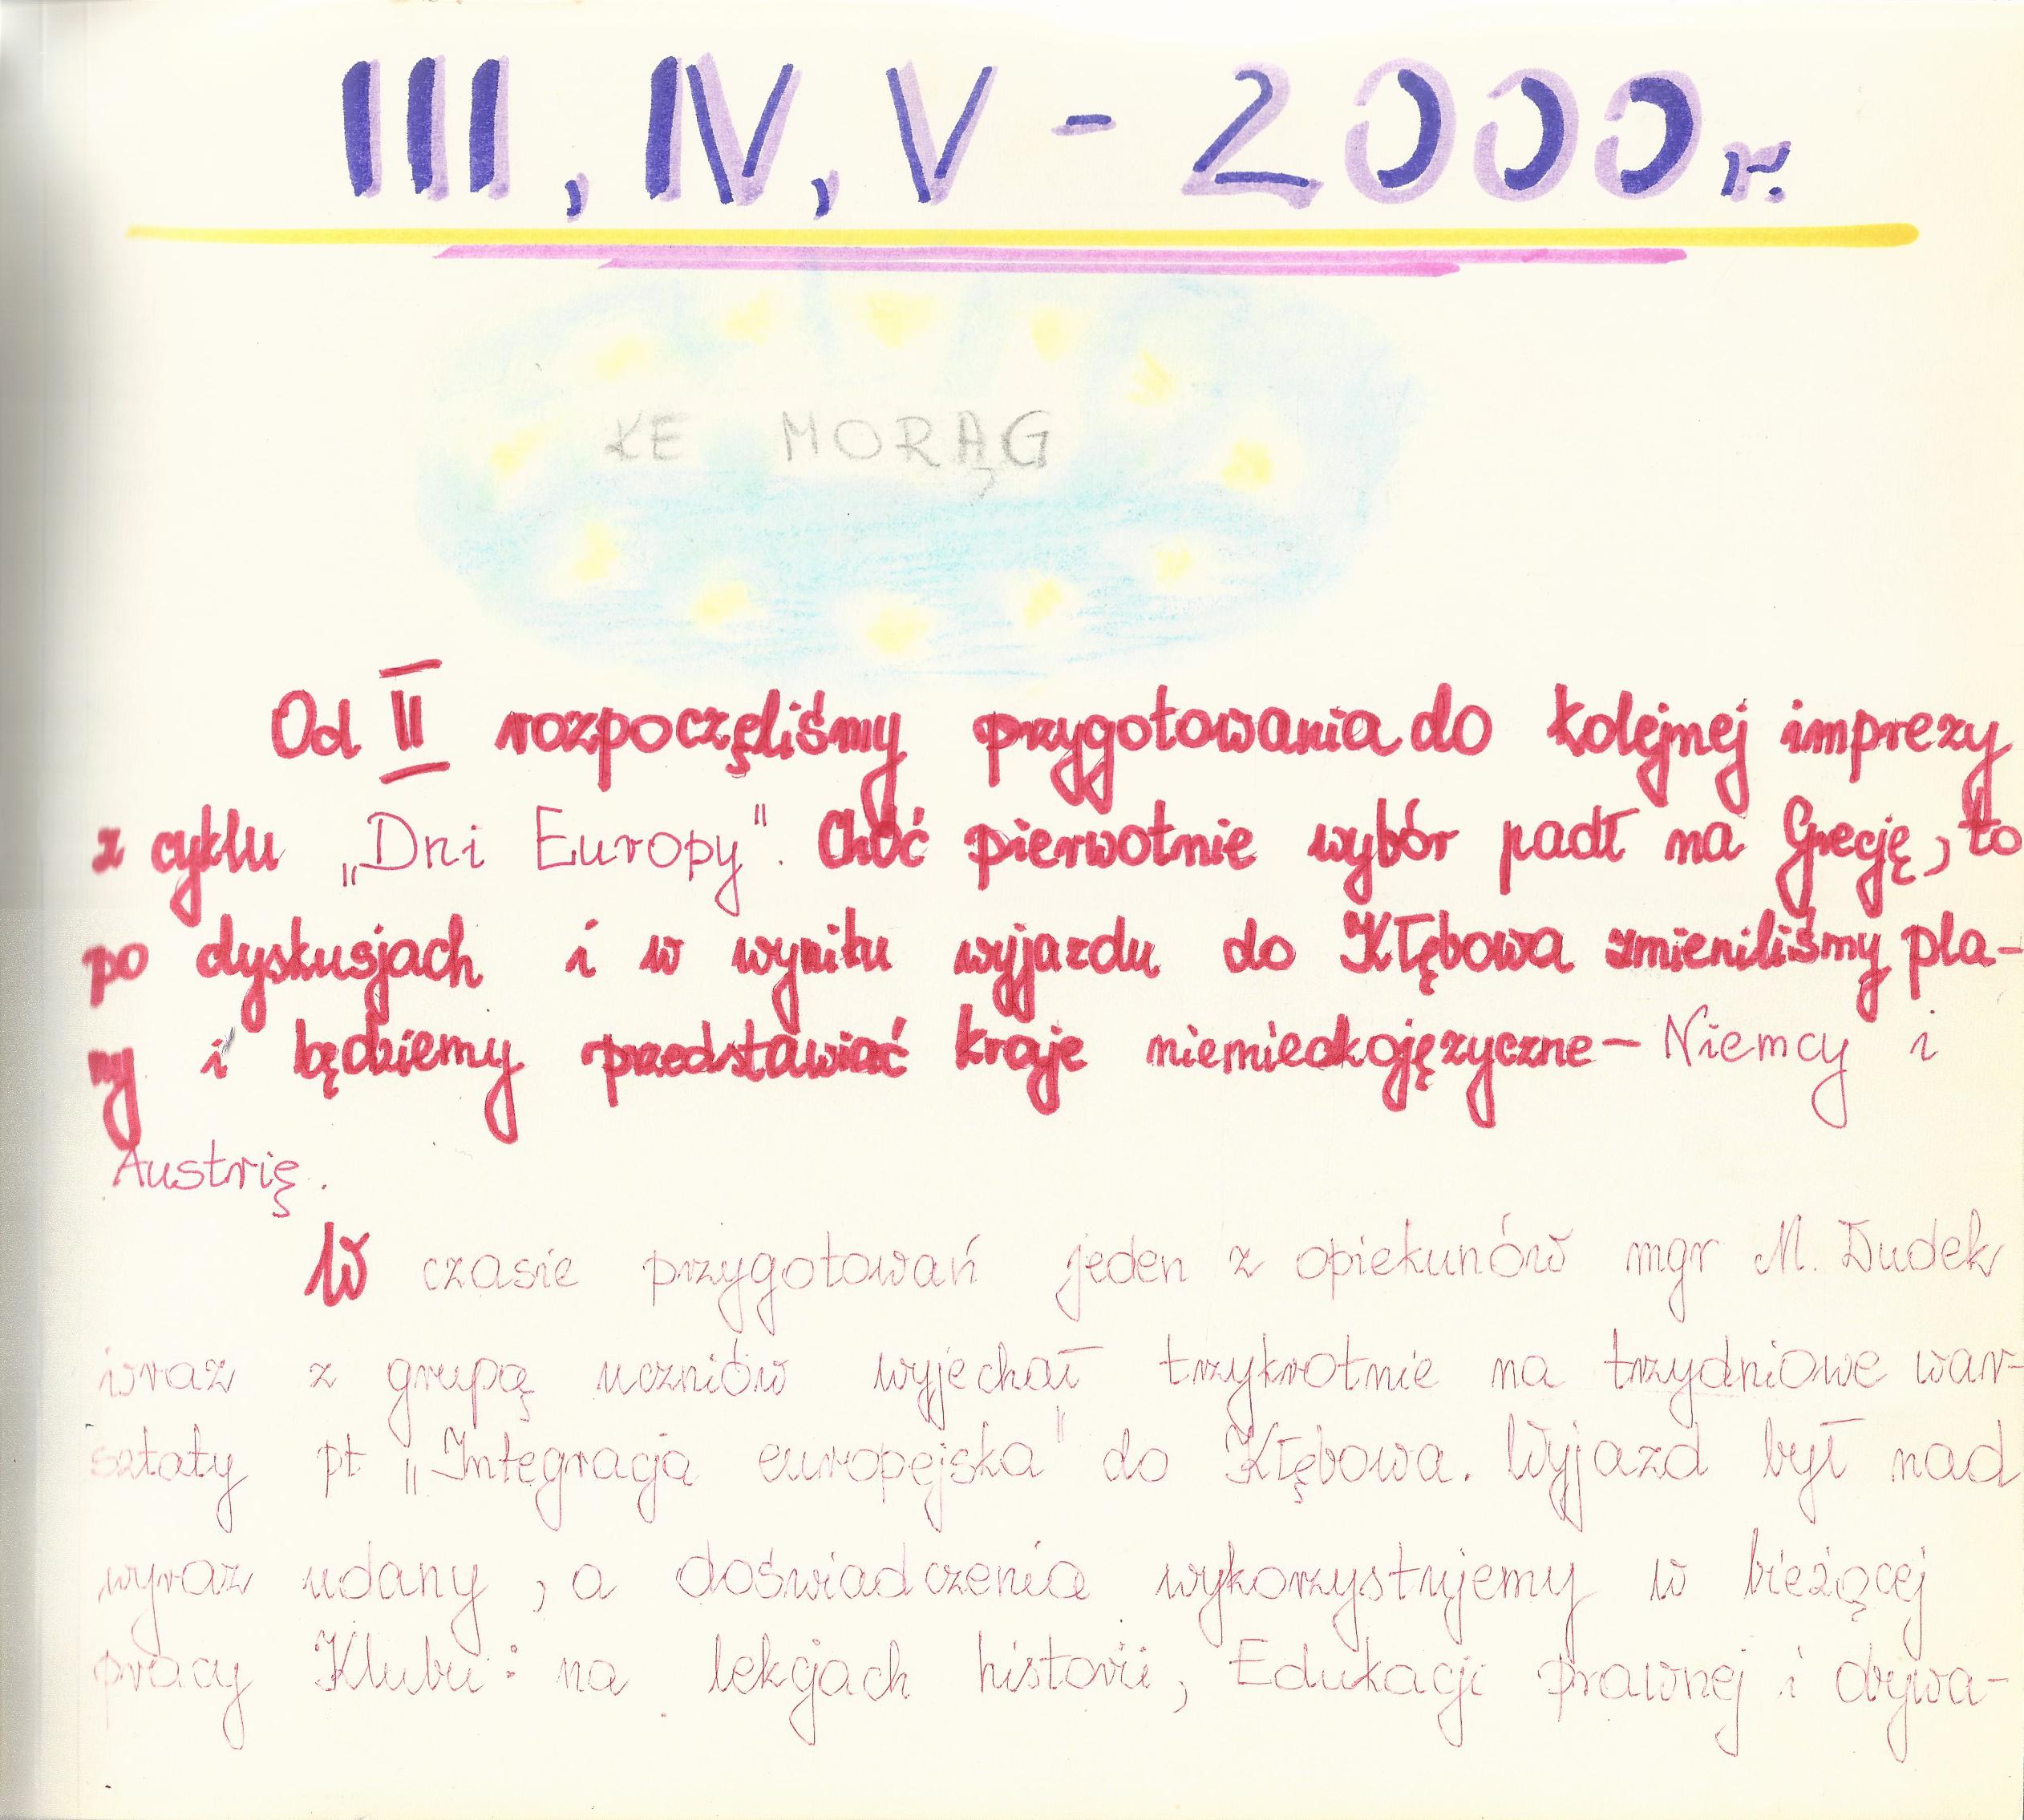 III, IV, V - 2000 r.
KE MORĄG
Od II rozpoczęliśmy przygotowania do kolejnej imprezy
z cyklu „Dni Europy". Choć pierwotnie wybór padł na Grecję, to
po dyskusjach i w wyniku wyjazdu do Kłębowa zmieniliśmy pla-
ny i będziemy przedstawiać kraje niemieckojęzyczne - Niemcy i
Austrię.
W czasie przygotowań jeden z opiekunów mgr M. Dudek
wraz z grupą uczniów wyjechał trzykrotnie na trzydniowe war-
sztaty pt „Integracja europejska" do Kłębowa. Wyjazd był nad
wyraz udany, a doświadczenia wykorzystujemy w bieżącej
pracy Klubu: na lekcjach historii, Edukacji prawnej i obywa-